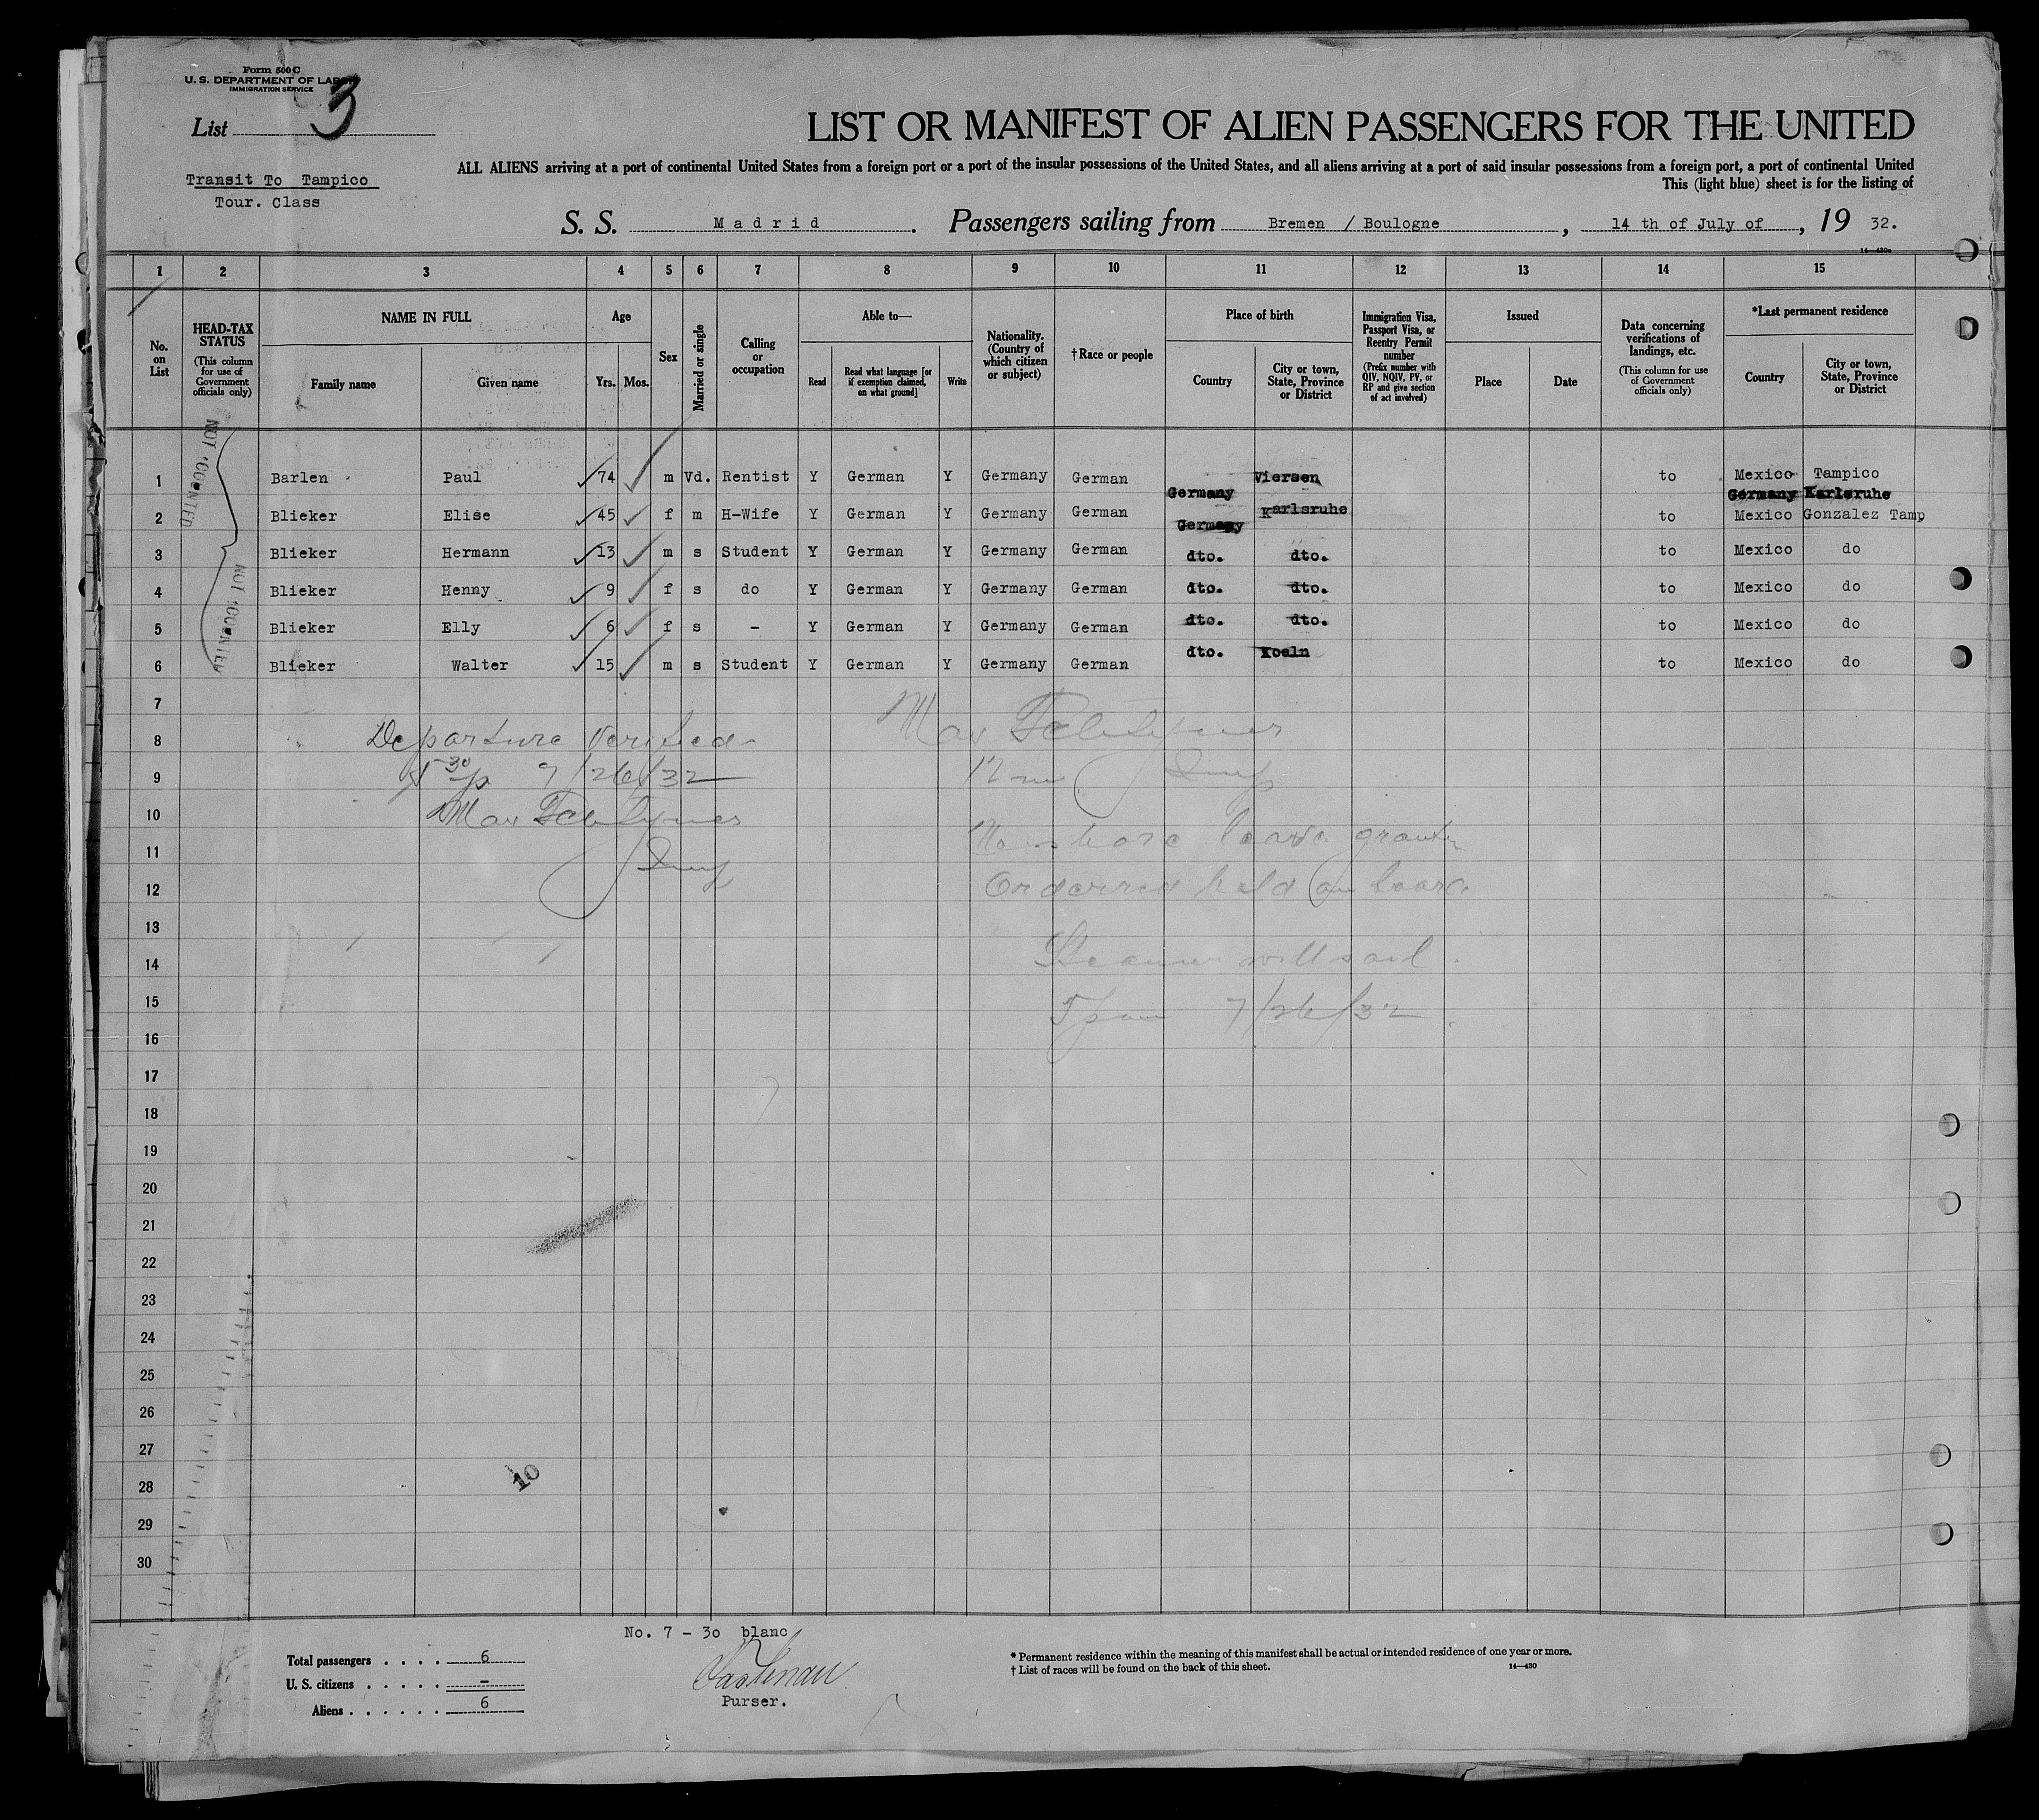 Form 500 C
U. S. DEPARTMENT OF LABOR
IMMIGRATION SERVICE
List 3
LIST OR MANIFEST OF ALIEN PASSENGERS FOR THE UNITED
ALL ALIENS arriving at a port of continental United States from a foreign port or a port of the insular possessions of the United States, and all aliens arriving at a port of said insular possessions from a foreign port, a port of continental United
This (light blue) sheet is for the listing of
Transit To Tampico
Tour. Class
S. S. Madrid. Passengers sailing from Bremen / Boulogne, 14 th of July of, 19 32.
14—430a
1 2 3 4 5 6 7 8 9 10 11 12 13 14 15
No. on List
HEAD-TAX STATUS (This column for use of Government officials only)
NAME IN FULL
Family name Given name
Age
Yrs. Mos.
Sex
Married or single
Calling or occupation
Able to—
Read Read what language [or if exemption claimed, on what ground] Write
Nationality. (Country of which citizen or subject)
†Race or people
Place of birth
Country City or town, State, Province or District
Immigration Visa, Passport Visa, or Reentry Permit number (Prefix number with QIV, NQIV, PV, or RP and give section of act involved)
Issued
Place Date
Data concerning verifications of landings, etc. (This column for use of Government officials only)
*Last permanent residence
Country City or town, State, Province or District
NOT COUNTED
NOT COUNTED
1 Barlen Paul 74 m Vd. Rentist Y German Y Germany German Germany Viersen to Mexico Tampico
Germany Karlsruhe
2 Blieker Elise 45 f m H-Wife Y German Y Germany German Germany Karlsruhe to Mexico Gonzalez Tamp
3 Blieker Hermann 13 m s Student Y German Y Germany German dto. dto. to Mexico do
4 Blieker Henny 9 f s do Y German Y Germany German dto. dto. to Mexico do
5 Blieker Elly 6 f s - Y German Y Germany German dto. dto. to Mexico do
6 Blieker Walter 15 m s Student Y German Y Germany German dto. Koeln to Mexico do
7
8 Departure Verified
9 5 30 p 7/26/32 12 m
10 Max
11 No shore leave granted
12 Ordered held on board
13
14 Steamer will sail
15 5 pm 7/26/32
16
17
18
19
20
21
22
23
24
25
26
27
28 10
29
30
No. 7 - 30 blanc
Total passengers . . . . 6
U. S. citizens . . . . . -
Aliens . . . . . . 6
Purser.
* Permanent residence within the meaning of this manifest shall be actual or intended residence of one year or more.
† List of races will be found on the back of this sheet. 14—430